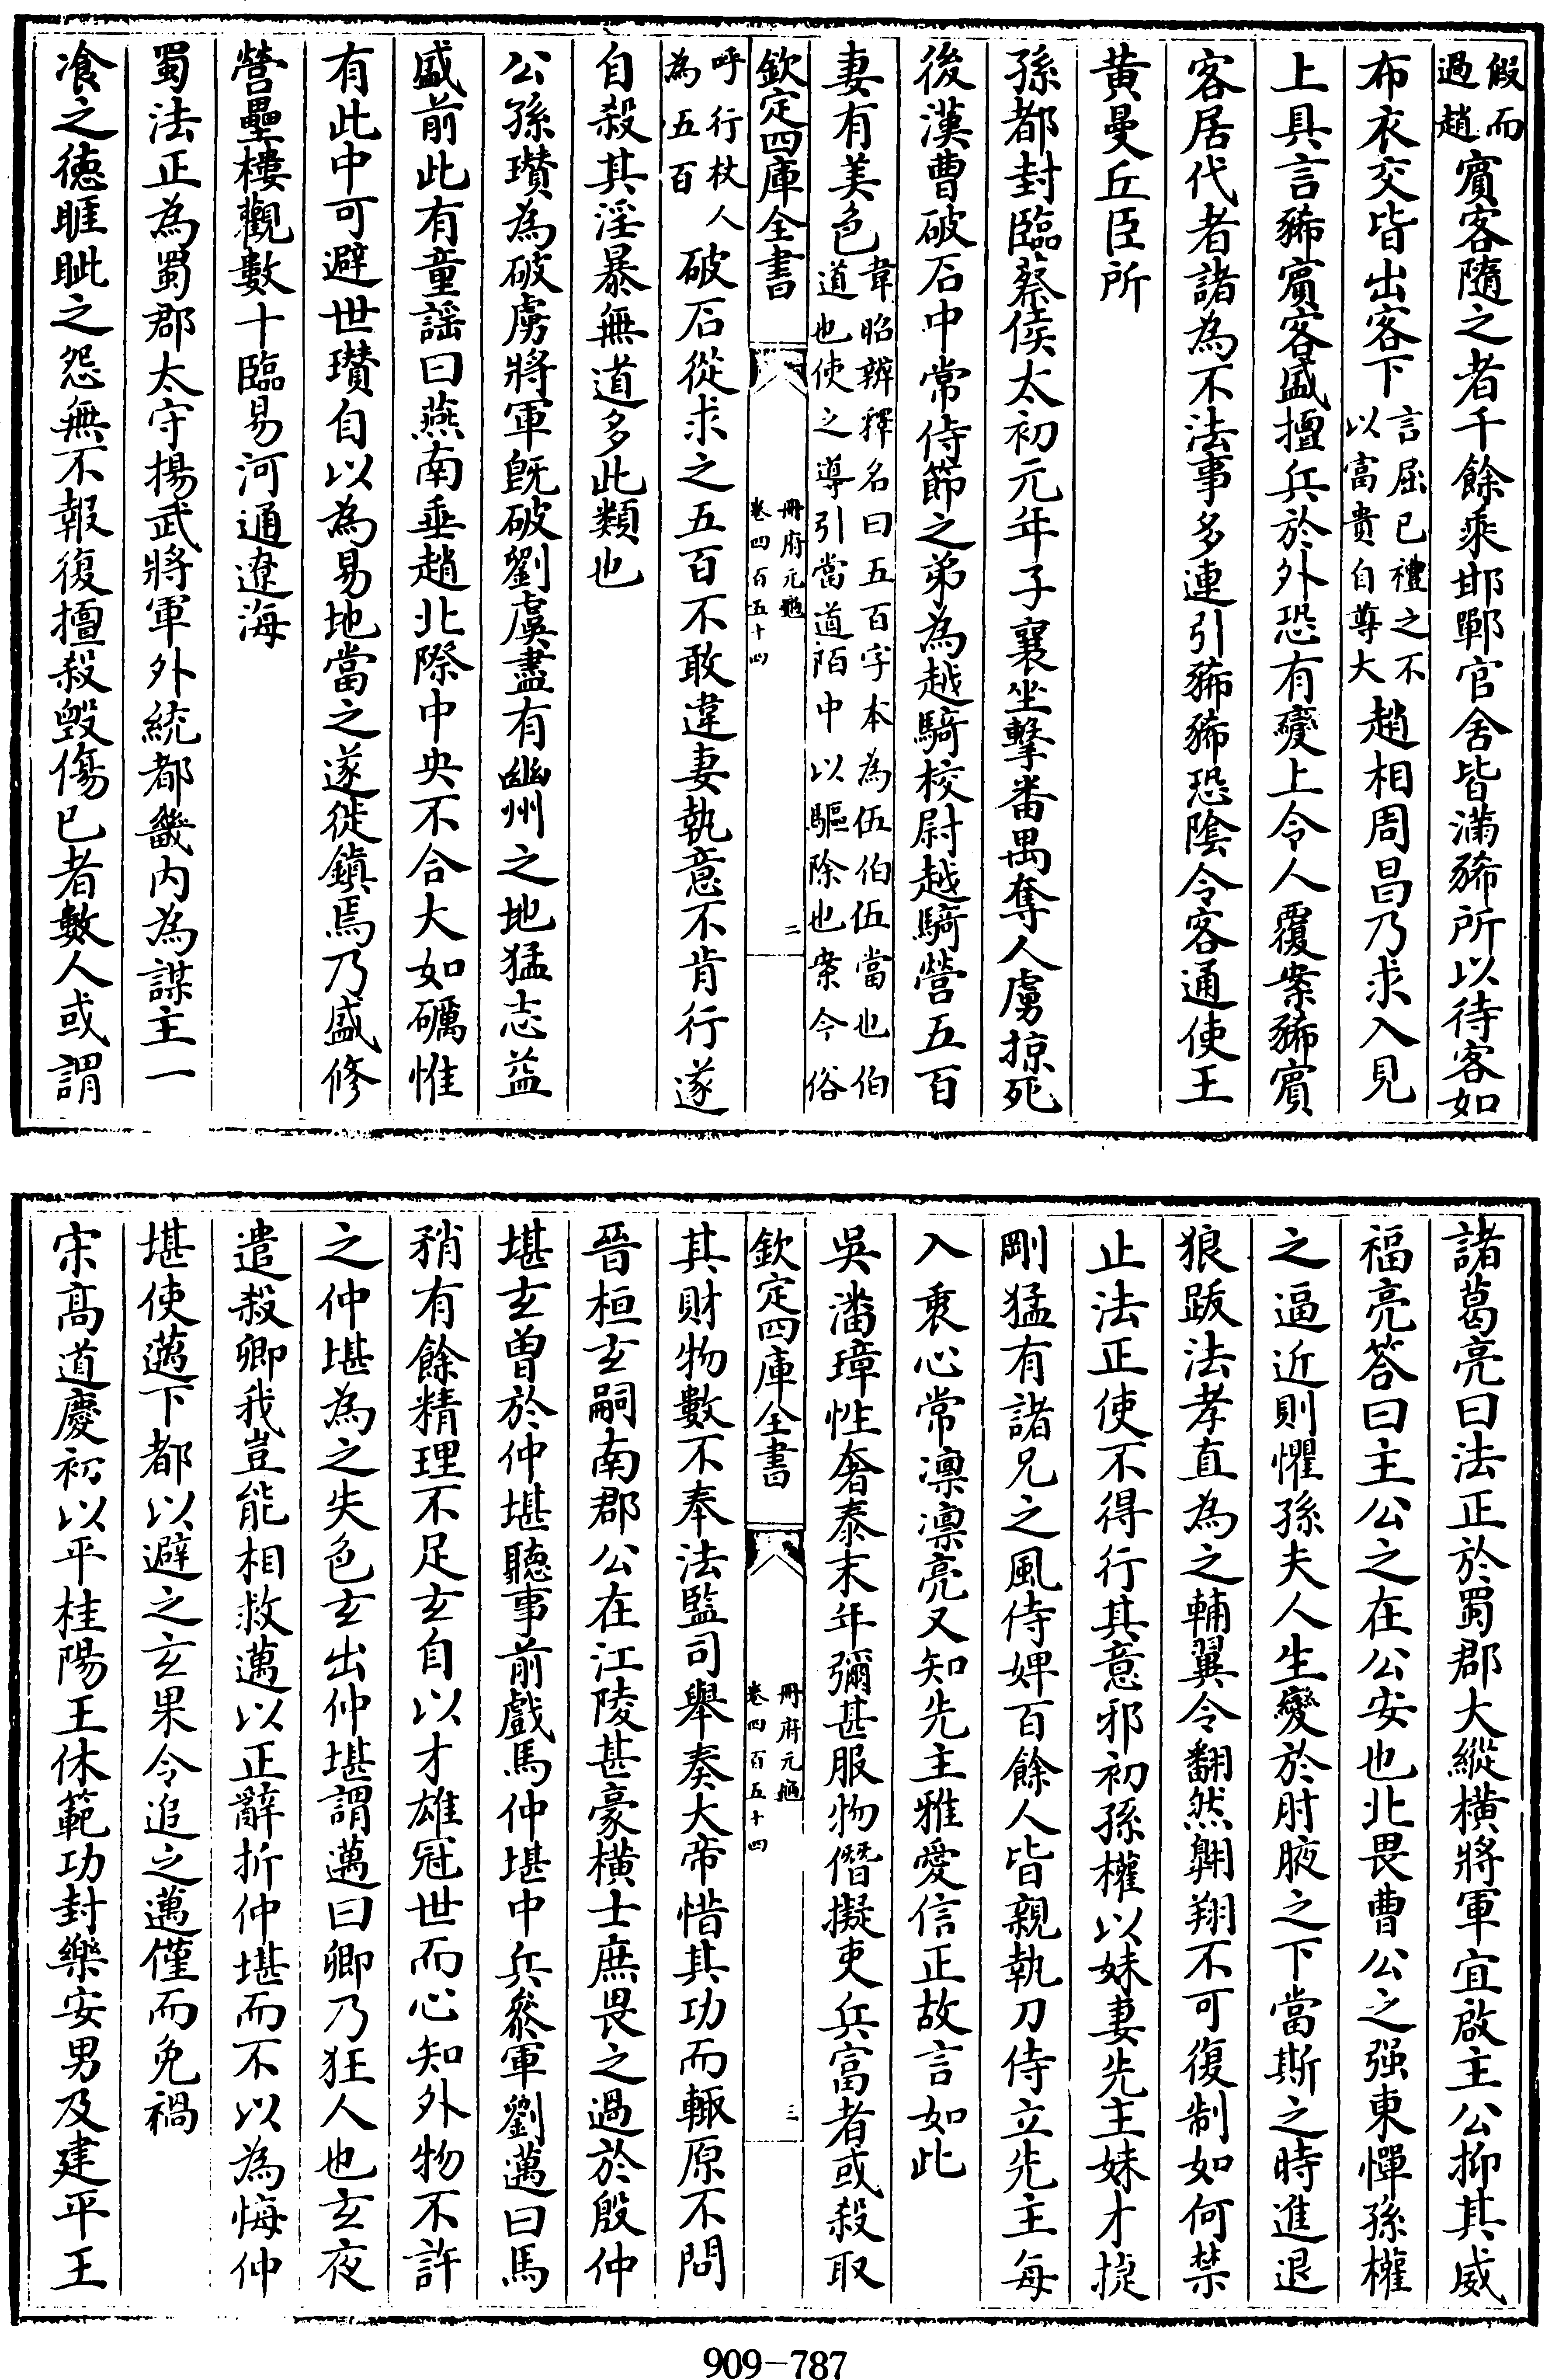 假而過趙賓客隨之者千餘乘邯鄲官舍皆滿豨所以待客如
布衣交皆出客下言屈已禮之不以富貴自尊大趙相周昌乃求入見
上具言豨賓客盛擅兵於外恐有變上令人覆案豨賓
客居代者諸為不法事多連引豨豨恐陰令客通使王
黃曼丘臣所
孫都封臨蔡侯太初元年子襄坐擊番禺奪人虜掠死
後漢曹破石中常侍節之弟為越騎校尉越騎營五百
妻有美色韋昭辨釋名曰五百字本為伍伯伍當也伯道也使之導引當道陌中以驅除也案今俗
欽定四庫全書
冊府元龜
卷四百五十四
二
呼行杖人為五百破石從求之五百不敢違妻執意不肯行遂
自殺其淫暴無道多此類也
公孫瓚為破虜將軍旣破劉虞盡有幽州之地猛志益
盛前此有童謡曰燕南垂趙北際中央不合大如礪惟
有此中可避世瓚自以為易地當之遂徙鎮焉乃盛修
營壘樓觀數十臨易河通遼海
蜀法正為蜀郡太守揚武將軍外統都畿內為謀主一
飡之德睚眦之怨無不報復擅殺毀傷已者數人或謂
諸葛亮曰法正於蜀郡大縱橫將軍宜啟主公抑其威
福亮答曰主公之在公安也北畏曹公之强東憚孫權
之逼近則懼孫夫人生變於肘腋之下當斯之時進退
狼跋法孝直為之輔翼令翻然翺翔不可復制如何禁
止法正使不得行其意邪初孫權以妹妻先主妹才捷
剛猛有諸兄之風侍婢百餘人皆親執刀侍立先主每
入衷心常凛凛亮又知先主雅愛信正故言如此
吳潘璋性奢泰末年彌甚服物僭擬吏兵富者或殺取
欽定四庫全書
冊府元龜
卷四百五十四
三
其財物數不奉法監司舉奏大帝惜其功而輙原不問
晉桓玄嗣南郡公在江陵甚豪橫士庶畏之過於殷仲
堪玄曾於仲堪聽事前戲馬仲堪中兵叅軍劉邁曰馬
矟有餘精理不足玄自以才雄冠世而心知外物不許
之仲堪為之失色玄出仲堪謂邁曰卿乃狂人也玄夜
遣殺卿我豈能相救邁以正辭折仲堪而不以為悔仲
堪使邁下都以避之玄果令追之邁僅而免禍
宋高道慶初以平桂陽王休範功封樂安男及建平王
909-787